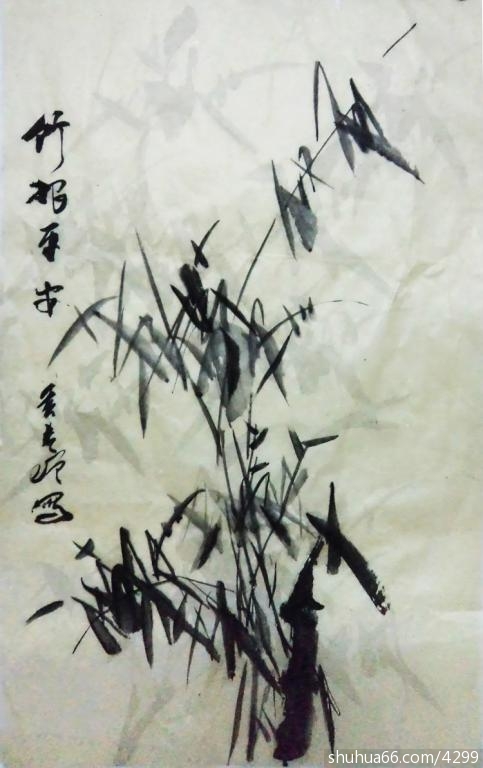 竹报平安
shuhua66.com/4299